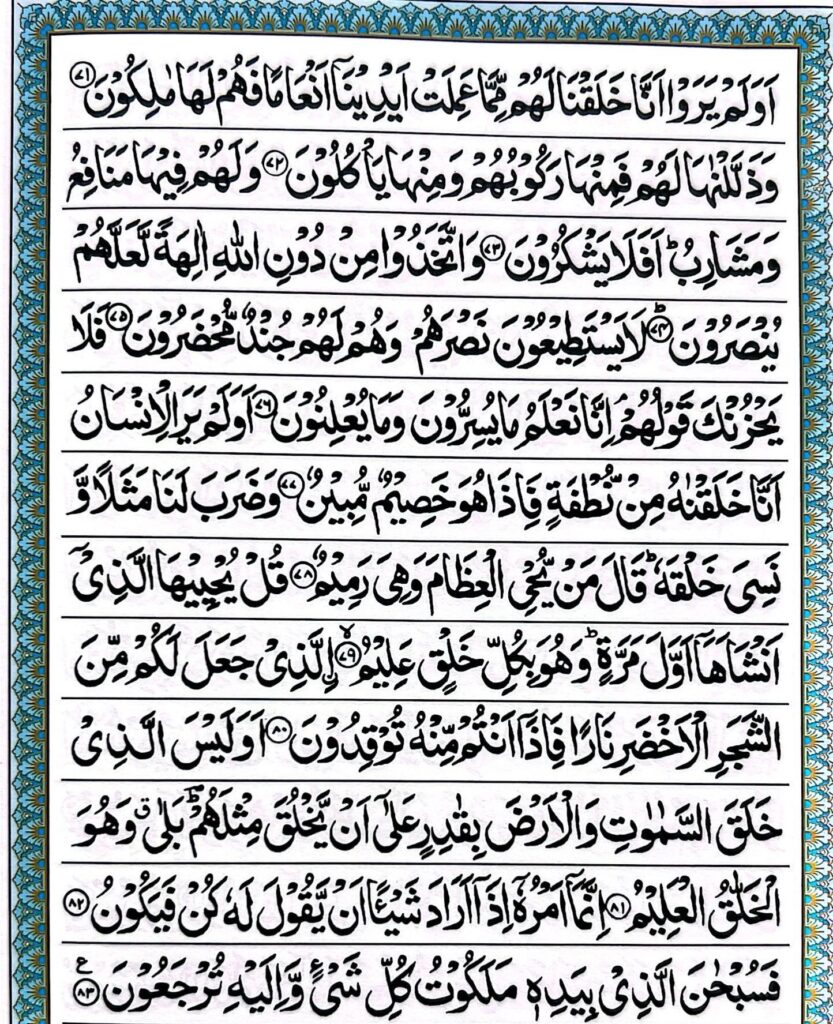 اَوَلَمْ يَرَوْا اَنَّا خَلَقْنَا لَهُمْ مِّمَّا عَمِلَتْ اَيْدِيْنَاۤ اَنْعَامًا فَهُمْ لَهَا مٰلِكُوْنَ ۷۱
وَذَلَّلْنٰهَا لَهُمْ فَمِنْهَا رَكُوْبُهُمْ وَمِنْهَا يَاْكُلُوْنَ ۷۲ وَلَهُمْ فِيْهَا مَنَافِعُ
وَمَشَارِبُ ؕ اَفَلَا يَشْكُرُوْنَ ۷۳ وَاتَّخَذُوْا مِنْ دُوْنِ اللّٰهِ اٰلِهَةً لَّعَلَّهُمْ
يُنْصَرُوْنَ ؕ ۷۴ لَا يَسْتَطِيْعُوْنَ نَصْرَهُمْ وَهُمْ لَهُمْ جُنْدٌ مُّحْضَرُوْنَ ۷۵ فَلَا
يَحْزُنْكَ قَوْلُهُمْ ۘ اِنَّا نَعْلَمُ مَا يُسِرُّوْنَ وَمَا يُعْلِنُوْنَ ۷۶ اَوَلَمْ يَرَ الْاِنْسَانُ
اَنَّا خَلَقْنٰهُ مِنْ نُّطْفَةٍ فَاِذَا هُوَ خَصِيْمٌ مُّبِيْنٌ ۷۷ وَضَرَبَ لَنَا مَثَلًا وَّ
نَسِيَ خَلْقَهٗ ؕ قَالَ مَنْ يُّحْيِ الْعِظَامَ وَهِيَ رَمِيْمٌ ۷۸ قُلْ يُحْيِيْهَا الَّذِيْۤ
اَنْشَاَهَاۤ اَوَّلَ مَرَّةٍ ؕ وَهُوَ بِكُلِّ خَلْقٍ عَلِيْمُ ۙ ۷۹ ۨالَّذِيْ جَعَلَ لَكُمْ مِّنَ
الشَّجَرِ الْاَخْضَرِ نَارًا فَاِذَاۤ اَنْتُمْ مِّنْهُ تُوْقِدُوْنَ ۸۰ اَوَلَيْسَ الَّذِيْ
خَلَقَ السَّمٰوٰتِ وَالْاَرْضَ بِقٰدِرٍ عَلٰۤى اَنْ يَّخْلُقَ مِثْلَهُمْ ؕ بَلٰى ۗ وَهُوَ
الْخَلّٰقُ الْعَلِيْمُ ۸۱ اِنَّمَاۤ اَمْرُهٗۤ اِذَاۤ اَرَادَ شَيْـًٔا اَنْ يَّقُوْلَ لَهٗ كُنْ فَيَكُوْنُ ۸۲
فَسُبْحٰنَ الَّذِيْ بِيَدِهٖ مَلَكُوْتُ كُلِّ شَيْءٍ وَّاِلَيْهِ تُرْجَعُوْنَ ۸۳ ع